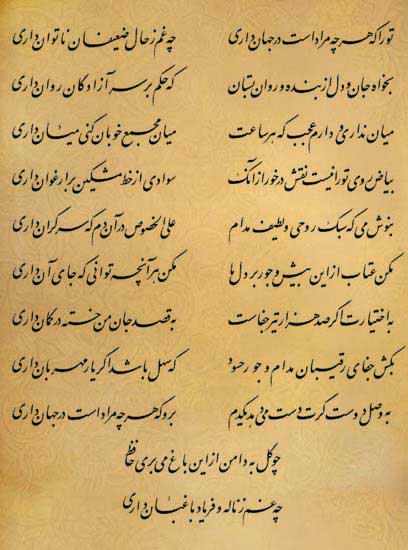 تو را که هر چه مراد است در جهان داری چه غم ز حال ضعیفان ناتوان داری
بخواه جان و دل از بنده و روان بستان که حکم بر سر آزادگان روان داری
میان نداری و دارم عجب که هر ساعت میان مجمع خوبان کنی میان داری
بیاض روی تو را نیست نقش در خور از آنک سوادی از خط مشکین بر ارغوان داری
بنوش می که سبک روحی و لطیف مدام علی الخصوص در آن دم که سر گران داری
مکن عتاب از این بیش و جور بر دل ها مکن هر آنچه توانی که جای آن داری
به اختیارت اگر صد هزار تیر جفاست به قصد جان من خسته در کمان داری
بکش جفای رقیبان مدام و جور حسود که سهل باشد اگر یار مهربان داری
به وصل دوست گرت دست می دهد یکدم برو که هر چه مراد است در جهان داری
چو گل به دامن از این باغ می بری حافظ
چه غم ز ناله و فریاد باغبان داری